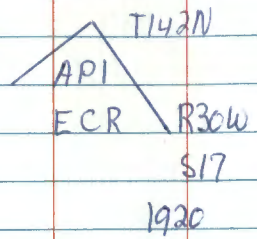 T142N
API
ECR R30W
S17
1920